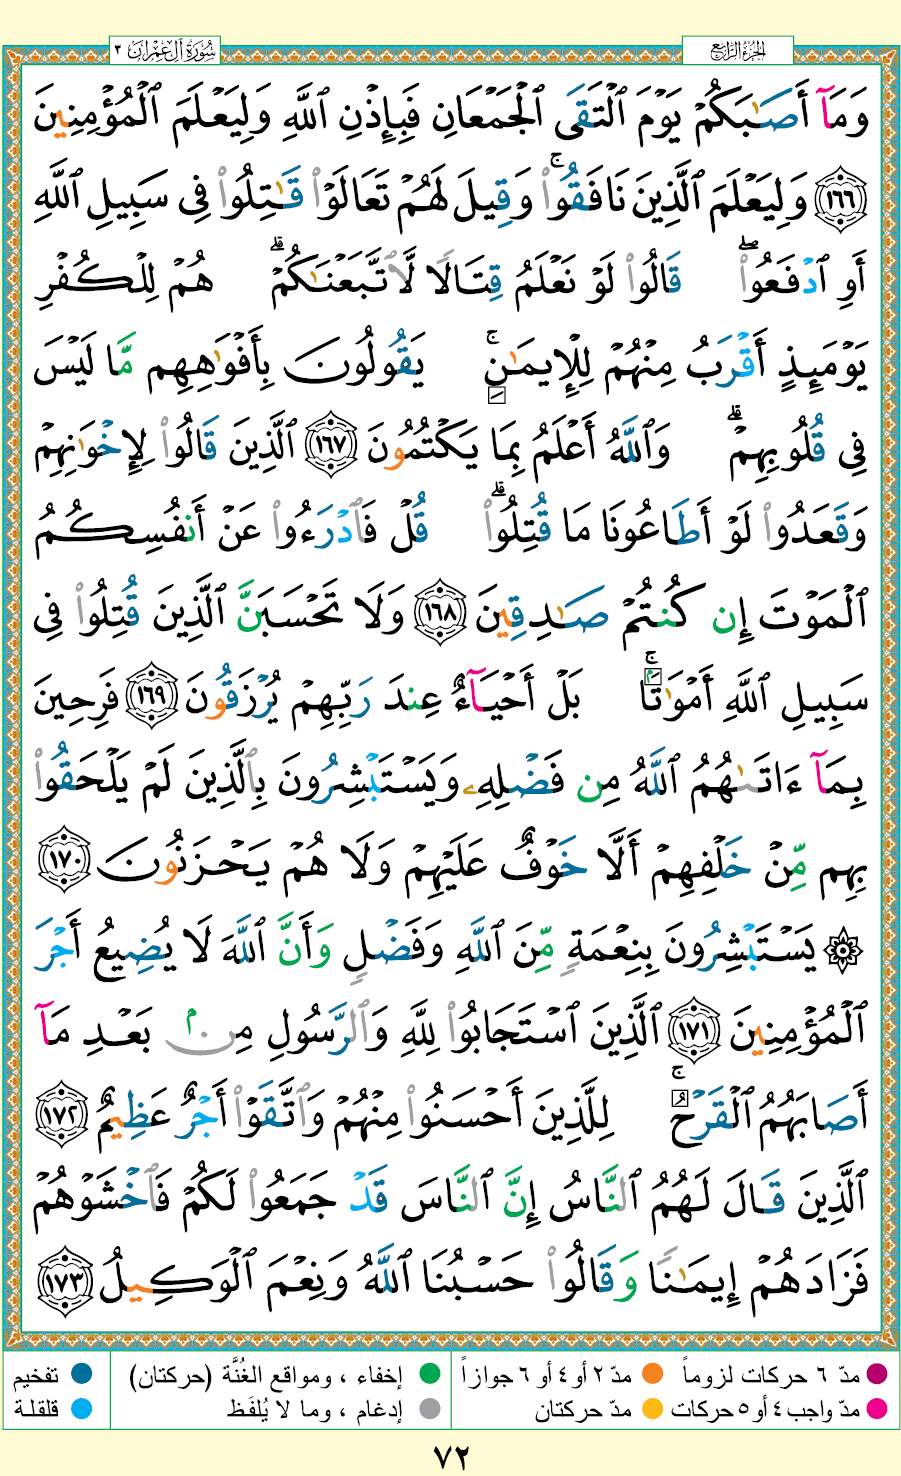 الجزء الرابع
سُورَةُ آلِ عِمْرَان ٣
وَمَآ أَصَٰبَكُمْ يَوْمَ ٱلْتَقَى ٱلْجَمْعَانِ فَبِإِذْنِ ٱللَّهِ وَلِيَعْلَمَ ٱلْمُؤْمِنِينَ
١٦٦ وَلِيَعْلَمَ ٱلَّذِينَ نَافَقُوا۟ ۚ وَقِيلَ لَهُمْ تَعَالَوْا۟ قَٰتِلُوا۟ فِى سَبِيلِ ٱللَّهِ
أَوِ ٱدْفَعُوا۟ ۖ قَالُوا۟ لَوْ نَعْلَمُ قِتَالًا لَّٱتَّبَعْنَٰكُمْ ۗ هُمْ لِلْكُفْرِ
يَوْمَئِذٍ أَقْرَبُ مِنْهُمْ لِلْإِيمَٰنِ ۚ يَقُولُونَ بِأَفْوَٰهِهِم مَّا لَيْسَ
فِى قُلُوبِهِمْ ۗ وَٱللَّهُ أَعْلَمُ بِمَا يَكْتُمُونَ ١٦٧ ٱلَّذِينَ قَالُوا۟ لِإِخْوَٰنِهِمْ
وَقَعَدُوا۟ لَوْ أَطَاعُونَا مَا قُتِلُوا۟ ۗ قُلْ فَٱدْرَءُوا۟ عَنْ أَنفُسِكُمُ
ٱلْمَوْتَ إِن كُنتُمْ صَٰدِقِينَ ١٦٨ وَلَا تَحْسَبَنَّ ٱلَّذِينَ قُتِلُوا۟ فِى
سَبِيلِ ٱللَّهِ أَمْوَٰتًۢا ۚ بَلْ أَحْيَآءٌ عِندَ رَبِّهِمْ يُرْزَقُونَ ١٦٩ فَرِحِينَ
بِمَآ ءَاتَىٰهُمُ ٱللَّهُ مِن فَضْلِهِۦ وَيَسْتَبْشِرُونَ بِٱلَّذِينَ لَمْ يَلْحَقُوا۟
بِهِم مِّنْ خَلْفِهِمْ أَلَّا خَوْفٌ عَلَيْهِمْ وَلَا هُمْ يَحْزَنُونَ ١٧٠
۞ يَسْتَبْشِرُونَ بِنِعْمَةٍ مِّنَ ٱللَّهِ وَفَضْلٍ وَأَنَّ ٱللَّهَ لَا يُضِيعُ أَجْرَ
ٱلْمُؤْمِنِينَ ١٧١ ٱلَّذِينَ ٱسْتَجَابُوا۟ لِلَّهِ وَٱلرَّسُولِ مِنۢ بَعْدِ مَآ
أَصَابَهُمُ ٱلْقَرْحُ ۚ لِلَّذِينَ أَحْسَنُوا۟ مِنْهُمْ وَٱتَّقَوْا۟ أَجْرٌ عَظِيمٌ ١٧٢
ٱلَّذِينَ قَالَ لَهُمُ ٱلنَّاسُ إِنَّ ٱلنَّاسَ قَدْ جَمَعُوا۟ لَكُمْ فَٱخْشَوْهُمْ
فَزَادَهُمْ إِيمَٰنًا وَقَالُوا۟ حَسْبُنَا ٱللَّهُ وَنِعْمَ ٱلْوَكِيلُ ١٧٣
مدّ ٦ حركات لزوماً مدّ ٢ أو ٤ أو ٦ جوازاً إخفاء ، ومواقع الغُنَّة (حركتان) تفخيم
مدّ واجب ٤ أو ٥ حركات مدّ حركتان إدغام ، وما لا يُلفَظ قلقلة
٧٢